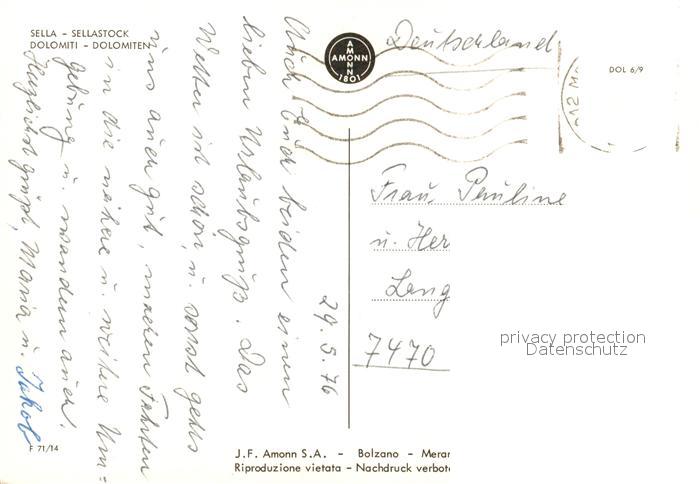 SELLA – SELLASTOCK
DOLOMITI - DOLOMITEN
AMONN
AMONN
1801
Deutschland
DOL 6/9
12 M
Auch Euch beiden einen
lieben Urlaubsgruß. Das
Wetter ist schön, u. sonst gehts
uns auch gut, machen Fahrten
in die nähere u. weitere Um=
gebung u. wandern auch.
Herzlichst grüßt, Maria u. Jakob
29. 5. 76
Frau Pauline
u. Her
Leng
7470
privacy protection
Datenschutz
F 71/14
J.F. Amonn S.A. – Bolzano – Meran
Riproduzione vietata – Nachdruck verbote